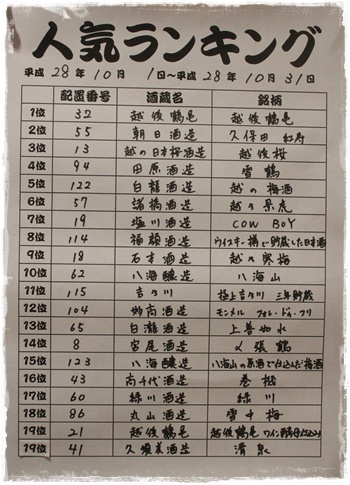 人気ランキング
平成 28 年 10 月 1日～平成 28 年 10 月 31日
配置番号 酒蔵名 銘柄
1位 32 越後鶴亀 越後鶴亀
2位 55 朝日酒造 久保田 紅寿
3位 13 越の日本桜酒造 越後桜
4位 94 田原酒造 雪鶴
5位 122 白龍酒造 越の梅酒
6位 57 諸橋酒造 越乃景虎
7位 19 塩川酒造 COW BOY
8位 114 福顔酒造 ウイスキー樽で貯蔵した日本酒
9位 18 石本酒造 越乃寒梅
10位 62 八海醸造 八海山
11位 115 吉乃川 極上吉乃川 三年貯蔵
12位 104 妙高酒造 モンメル フォレ・ドゥ・フリ
13位 65 白瀧酒造 上善如水
14位 8 宮尾酒造 〆張鶴
15位 123 八海醸造 八海山の原酒で仕込んだ梅酒
16位 43 高千代酒造 巻機
17位 60 緑川酒造 緑川
18位 86 丸山酒造 雪中梅
19位 21 越後鶴亀 越後鶴亀 ワイン酵母仕込み
19位 41 久須美酒造 清泉